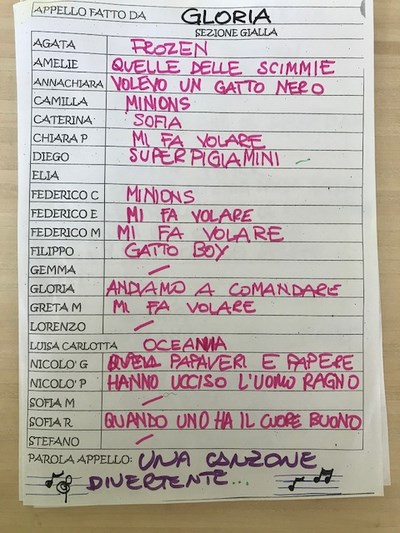 APPELLO FATTO DA GLORIA
SEZIONE GIALLA
AGATA FROZEN
AMELIE QUELLE DELLE SCIMMIE
ANNACHIARA VOLEVO UN GATTO NERO
CAMILLA MINIONS
CATERINA SOFIA
CHIARA P MI FA VOLARE
DIEGO SUPERPIGIAMINI
ELIA
FEDERICO C MINIONS
FEDERICO E MI FA VOLARE
FEDERICO M MI FA VOLARE
FILIPPO GATTO BOY
GEMMA
GLORIA ANDIAMO A COMANDARE
GRETA M MI FA VOLARE
LORENZO
LUISA CARLOTTA OCEANIA
NICOLO' G PAPAVERI E PAPERE
NICOLO' P HANNO UCCISO L'UOMO RAGNO
SOFIA M
SOFIA R QUANDO UNO HA IL CUORE BUONO
STEFANO
PAROLA APPELLO: UNA CANZONE
DIVERTENTE...